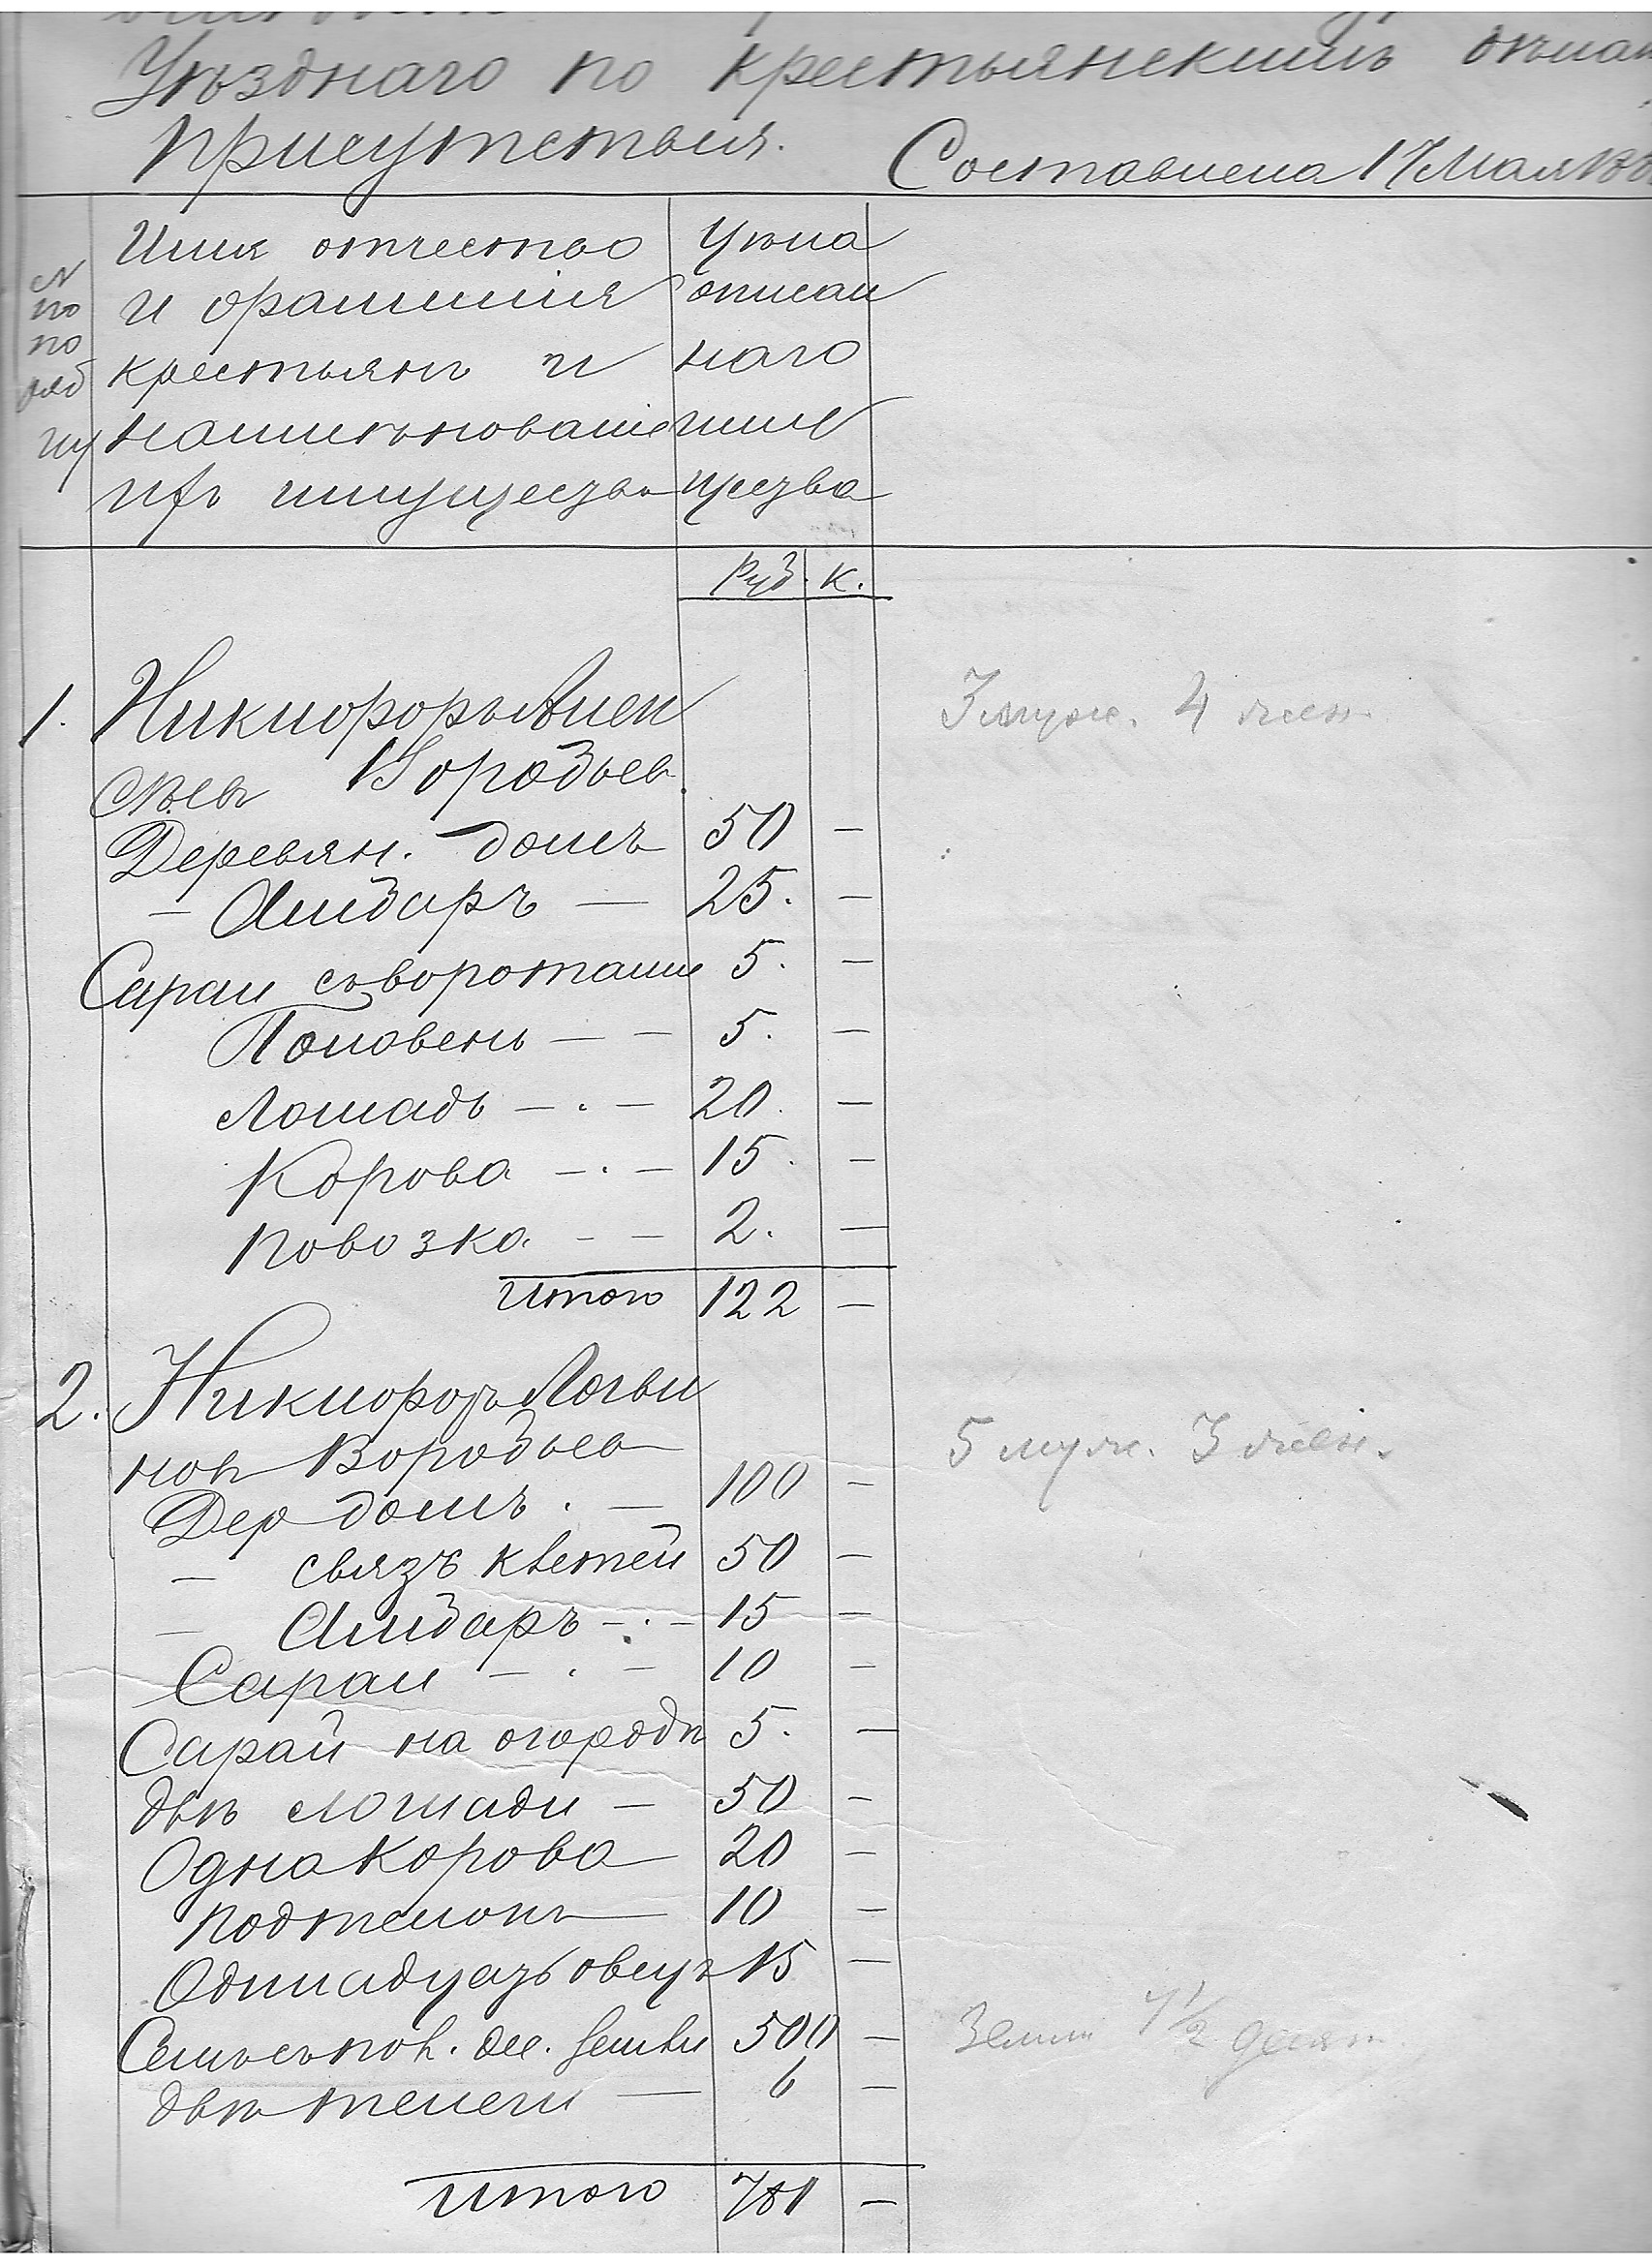 Уѣзднаго по крестьянскимъ дѣлам
присутствія. Составлена 17 Мая 188
№ по по ряд ку
Имя отчество
и фамилія
крестьянъ и
наименованіе
ихъ имущества
Цѣна
описан
наго
иму
щества
Руб. К.
1. Никифоръ Алек
сѣевъ Воробьев
3 муж. 4 жен.
Деревян. домъ 50 —
— Амбаръ — 25. —
Сараи съ воротами 5. —
Половень — — 5. —
Лошадь — . — 20. —
Корова — . — 15. —
Повозка — — 2. —
Итого 122 —
2. Никифоръ Логви
нов Воробьев
5 муж. 3 жен.
Дер домъ . — 100 —
— связь клетей 50 —
— Амбаръ — . — 15 —
Сараи — . — 10 —
Сарай на огородѣ 5. —
двѣ лошади — 50 —
Одна корова 20 —
подтелокъ — 10 —
Одинадцать овецъ 15 —
Семь съ пол. дес. земли 500 —
Земли 7 1/2 десят.
двѣ телеги — 6 —
Итого 781 —